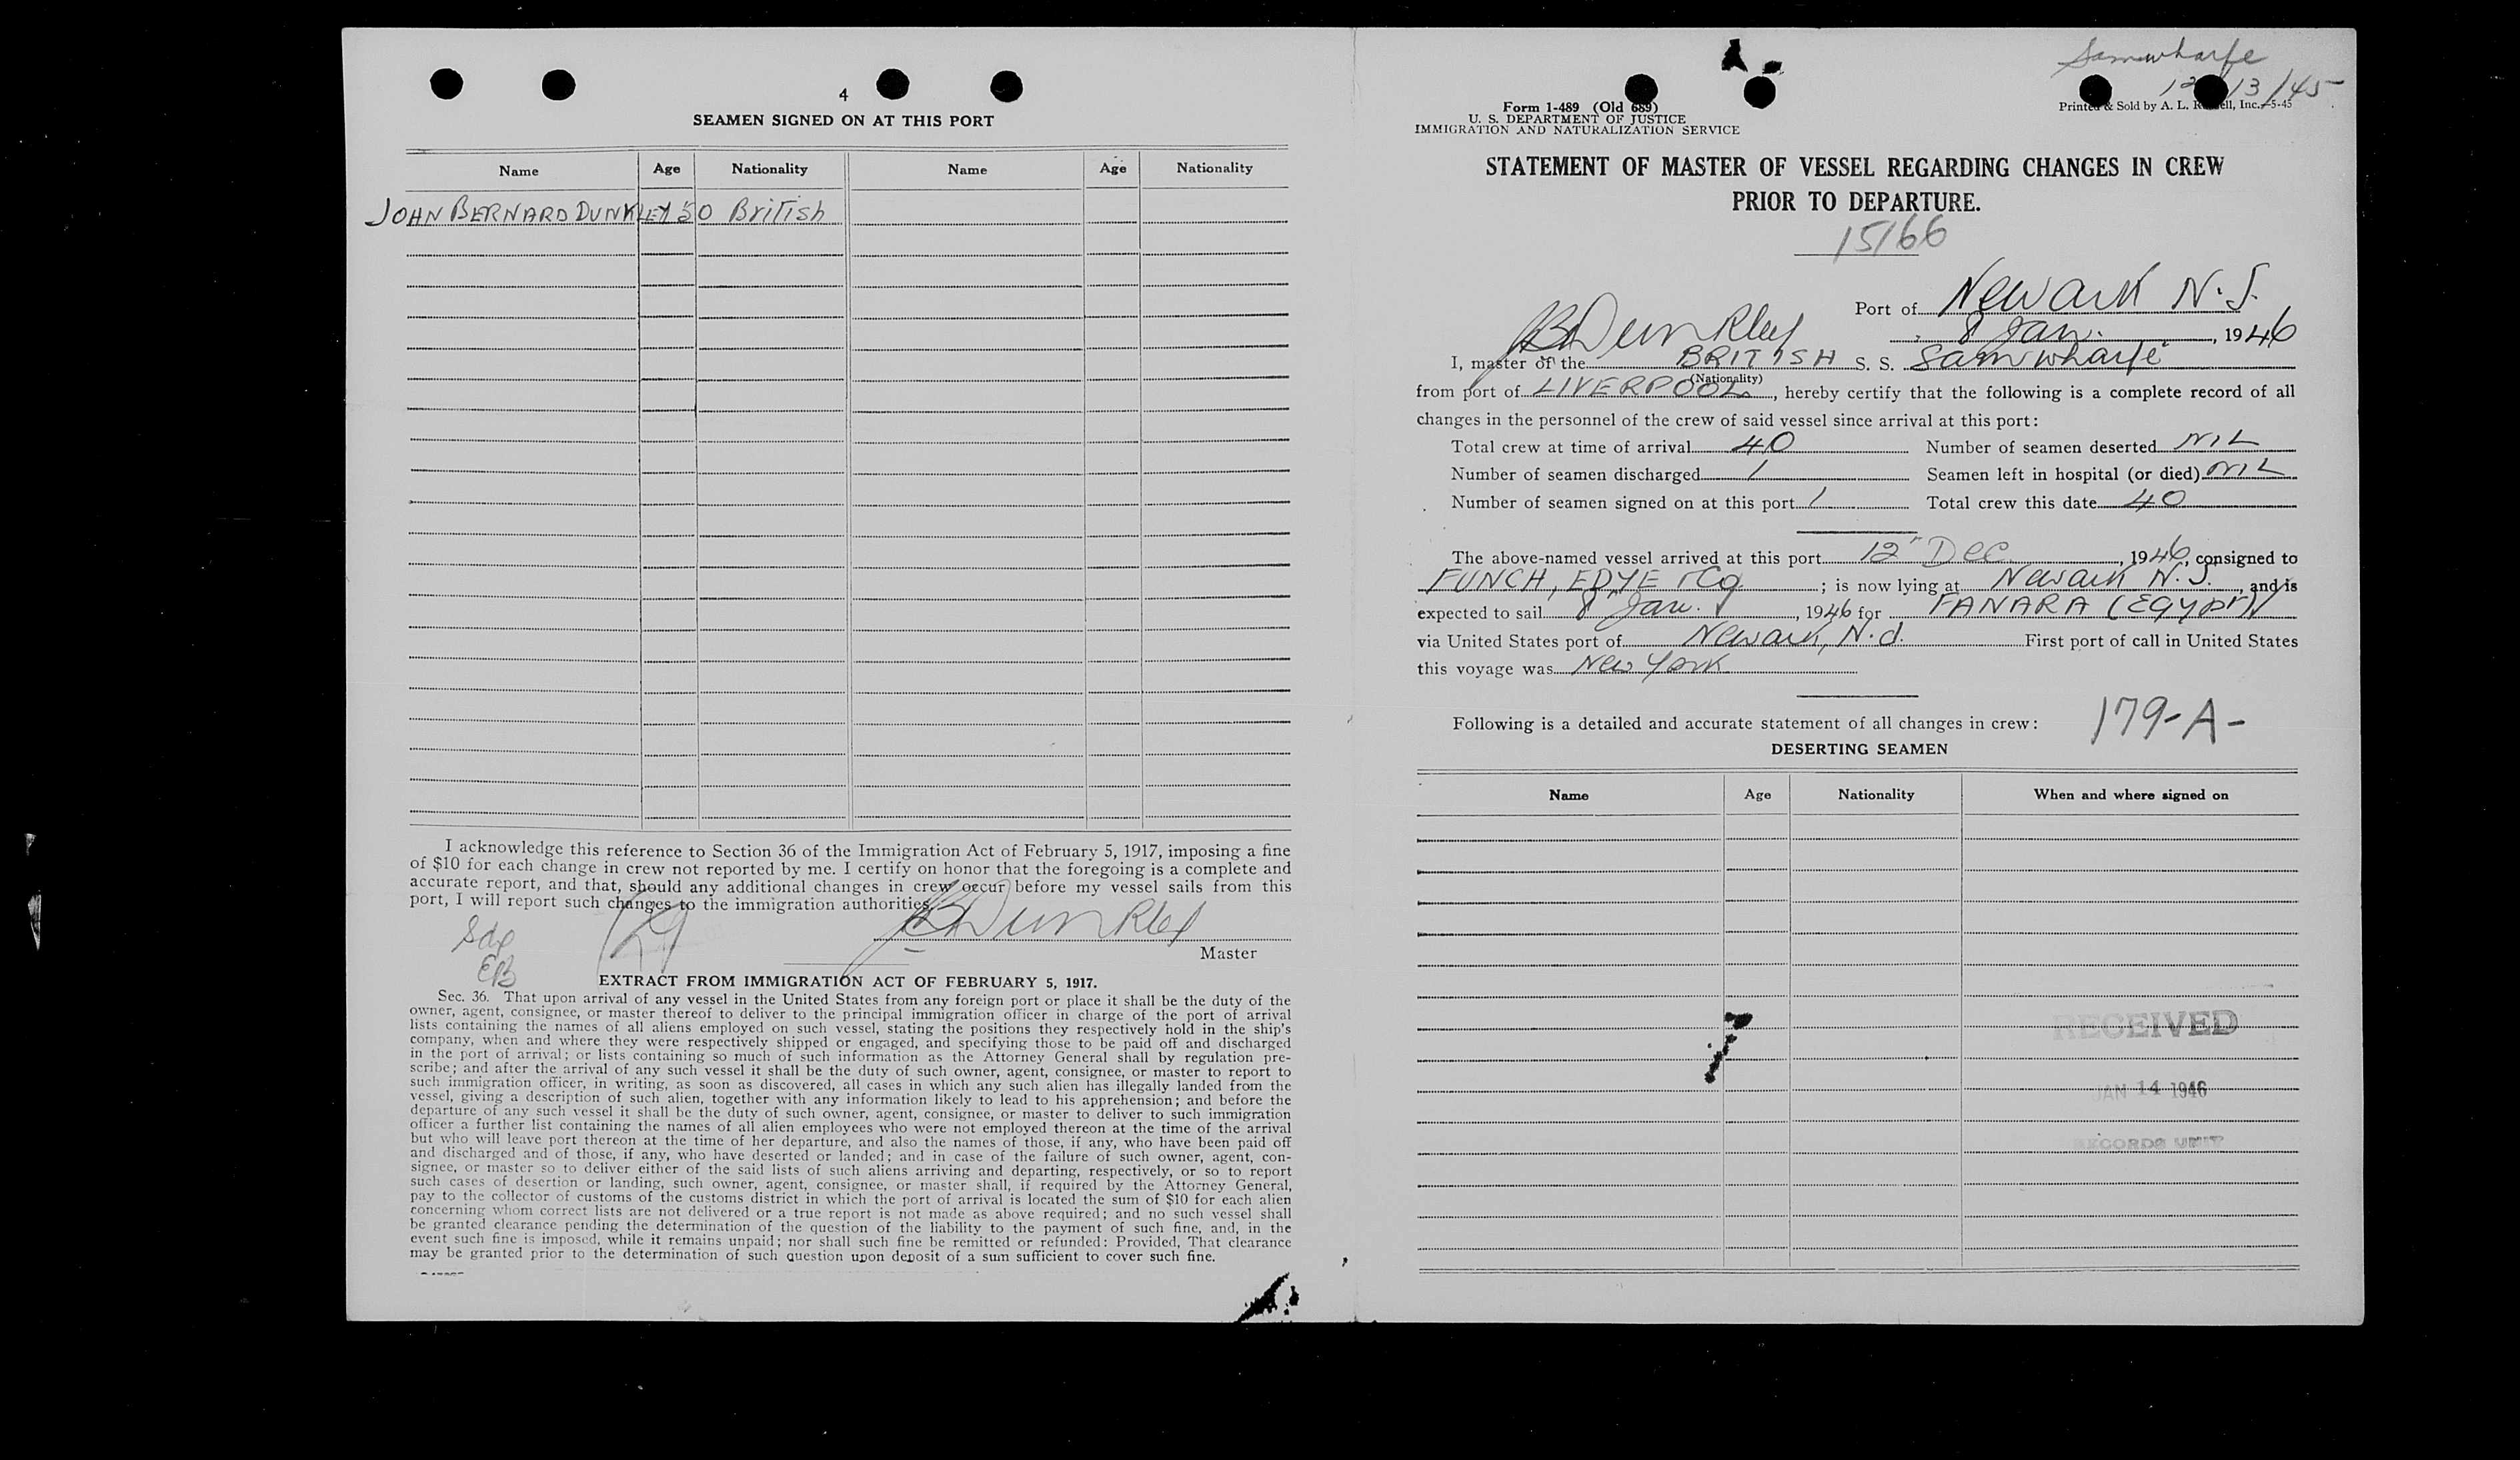 4
SEAMEN SIGNED ON AT THIS PORT
Name Age Nationality Name Age Nationality
JOHN BERNARD DUNKLEY 50 British
I acknowledge this reference to Section 36 of the Immigration Act of February 5, 1917, imposing a fine
of $10 for each change in crew not reported by me. I certify on honor that the foregoing is a complete and
accurate report, and that, should any additional changes in crew occur before my vessel sails from this
port, I will report such changes to the immigration authorities.
Sdg
EB
JBDunkley
Master
EXTRACT FROM IMMIGRATION ACT OF FEBRUARY 5, 1917.
Sec. 36. That upon arrival of any vessel in the United States from any foreign port or place it shall be the duty of the
owner, agent, consignee, or master thereof to deliver to the principal immigration officer in charge of the port of arrival
lists containing the names of all aliens employed on such vessel, stating the positions they respectively hold in the ship's
company, when and where they were respectively shipped or engaged, and specifying those to be paid off and discharged
in the port of arrival; or lists containing so much of such information as the Attorney General shall by regulation pre-
scribe; and after the arrival of any such vessel it shall be the duty of such owner, agent, consignee, or master to report to
such immigration officer, in writing, as soon as discovered, all cases in which any such alien has illegally landed from the
vessel, giving a description of such alien, together with any information likely to lead to his apprehension; and before the
departure of any such vessel it shall be the duty of such owner, agent, consignee, or master to deliver to such immigration
officer a further list containing the names of all alien employees who were not employed thereon at the time of the arrival
but who will leave port thereon at the time of her departure, and also the names of those, if any, who have been paid off
and discharged and of those, if any, who have deserted or landed; and in case of the failure of such owner, agent, con-
signee, or master so to deliver either of the said lists of such aliens arriving and departing, respectively, or so to report
such cases of desertion or landing, such owner, agent, consignee, or master shall, if required by the Attorney General,
pay to the collector of customs of the customs district in which the port of arrival is located the sum of $10 for each alien
concerning whom correct lists are not delivered or a true report is not made as above required; and no such vessel shall
be granted clearance pending the determination of the question of the liability to the payment of such fine, and, in the
event such fine is imposed, while it remains unpaid; nor shall such fine be remitted or refunded: Provided, That clearance
may be granted prior to the determination of such question upon deposit of a sum sufficient to cover such fine.
Samwharfe
12/13/45
Form 1-489 (Old 689)
U. S. DEPARTMENT OF JUSTICE
IMMIGRATION AND NATURALIZATION SERVICE
Printed & Sold by A. L. Russell, Inc.-5-45
STATEMENT OF MASTER OF VESSEL REGARDING CHANGES IN CREW
PRIOR TO DEPARTURE.
15166
Port of Newark N.J.
8 Jan. , 1946
JBDunkley
I, master of the BRITISH S. S. Samwharfe
(Nationality)
from port of LIVERPOOL, hereby certify that the following is a complete record of all
changes in the personnel of the crew of said vessel since arrival at this port:
Total crew at time of arrival 40 Number of seamen deserted NIL
Number of seamen discharged 1 Seamen left in hospital (or died) NIL
Number of seamen signed on at this port 1 Total crew this date 40
The above-named vessel arrived at this port 12 Dec. , 1946, consigned to
FUNCH, EDYE & Co ; is now lying at Newark N.J. , and is
expected to sail 8 Jan. , 1946 for FANARA (EGYPT)
via United States port of Newark, N.J. First port of call in United States
this voyage was New York
Following is a detailed and accurate statement of all changes in crew:
179-A-
DESERTING SEAMEN
Name Age Nationality When and where signed on
RECEIVED
JAN 14 1946
RECORDS UNIT